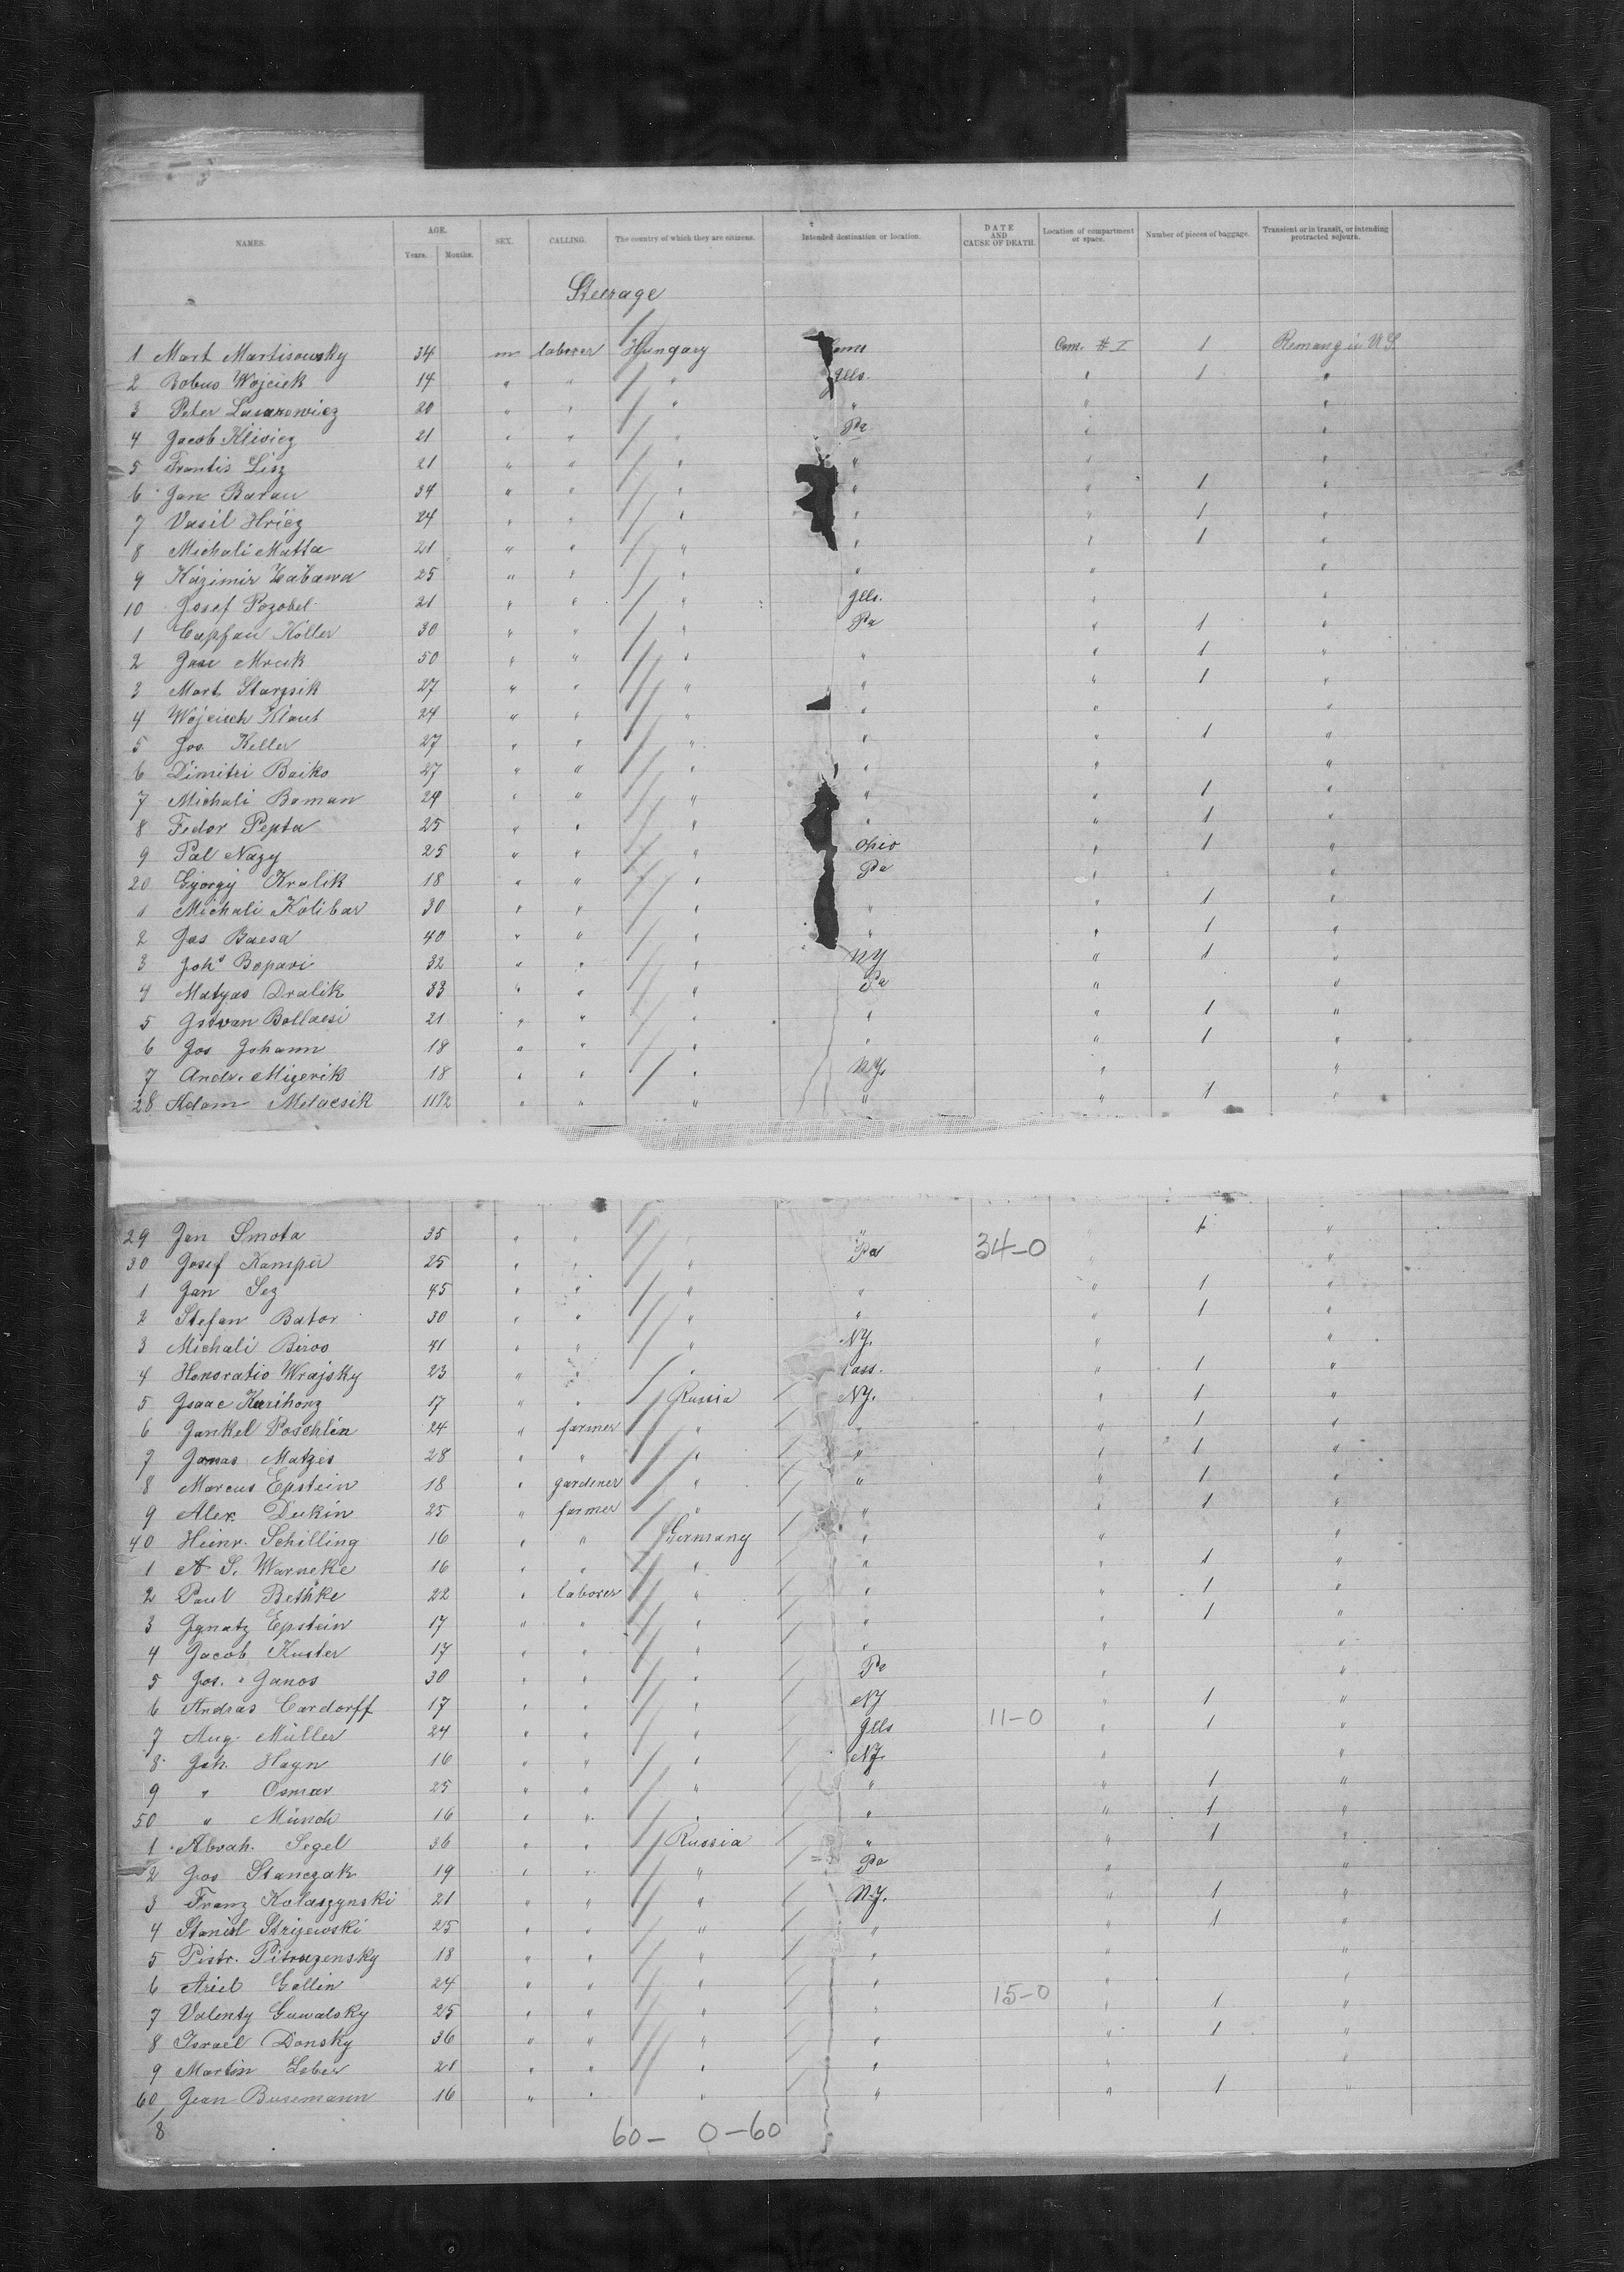 NAMES. AGE. Years. Months. SEX. CALLING. The country of which they are citizens. Intended destination or location. DATE AND CAUSE OF DEATH. Location of compartment or space. Number of pieces of baggage. Transient or in transit, or intending protracted sojourn.
Steerage
1 Mart Martisowsky 34 m laborer Hungary Com. # I 1 U S
2 Wojciek 14 " " " Ills. " 1 "
3 Peter Lusakowicz 20 " " " " " "
4 Jacob Klivicz 21 " " " Pa " "
5 Frantis Lisz 21 " " " " " "
6 Jan Baran 34 " " " " " 1 "
7 Vasil Hricz 24 " " " " " 1 "
8 Michali Matta 21 " " " " " 1 "
9 Kazimir Zabawa 25 " " " " " "
10 Josef Pozobel 21 " " " Ills. " "
1 Koller 30 " " " Pa " 1 "
2 Mrcik 50 " " " " " 1 "
3 Mart Starpsik 27 " " " " " 1 "
4 Wojciech Klaut 24 " " " " " "
5 Jos. Keller 27 " " " " " 1 "
6 Dimitri Baiko 27 " " " " " "
7 Michali Boman 24 " " " " " 1 "
8 Fedor Pepta 25 " " " " " 1 "
9 Pal Nagy 25 " " " Ohio " 1 "
20 György Kralik 18 " " " Pa " "
1 Michali Kolibar 30 " " " " " 1 "
2 Jas Bacsa 40 " " " " " 1 "
3 Joh Bopavi 32 " " " NY " 1 "
4 Matyas Dralik 33 " " " Pa " "
5 Istvan Bollacsi 21 " " " " " 1 "
6 Jos Johann 18 " " " " " 1 "
7 Andr. Migerik 18 " " " N.Y. " "
28 Adam Melacsik 11½ " " " " " 1 "
29 Jan Smota 35 " " " 1 "
30 Josef Kampir 25 " " " Pa 34-0 " "
1 Jan Sez 45 " " " " " 1 "
2 Stefan Bator 30 " " " " " 1 "
3 Michali Biros 41 " " " NY. " "
4 Honoratio Wrajsky 23 " " " ass. " 1 "
5 Isaac Kurihonz 17 " " Russia NY. " 1 "
6 Jankel Poschlin 24 " farmer " " " 1 "
7 Jonas Matzes 28 " " " " " 1 "
8 Marcus Epstein 18 " gardener " " " 1 "
9 Alex. Dukin 25 " farmer " " " 1 "
40 Heinr. Schilling 16 " " Germany " " "
1 A S. Warneke 16 " " " " " 1 "
2 Paul Bethke 22 " laborer " " " 1 "
3 Ignatz Epstein 17 " " " " " 1 "
4 Jacob Kuster 17 " " " " " "
5 Jos. Janos 30 " " " Pa " "
6 Andras Cardorff 17 " " " NY " 1 "
7 Aug. Müller 24 " " " Ills 11-0 " 1 "
8 Joh. Hayn 16 " " " NY. " "
9 " Osmar 25 " " " " " 1 "
50 " Münch 16 " " " " " 1 "
1 Abrah. Segel 36 " " Russia " " 1 "
2 Jos Stanczak 19 " " " Pa " "
3 Franz Kolaszynski 21 " " " N.Y. " 1 "
4 Stanisl Strijewski 25 " " " " " 1 "
5 Pistr. Pitruzensky 18 " " " " " "
6 Ariel Gallin 24 " " " " 15-0 " "
7 Valenty Guwalsky 25 " " " " " 1 "
8 Israel Donsky 36 " " " " " 1 "
9 Martin 21 " " " " " "
60 Jean Busemann 16 " " " " " 1 "
8
60- 0-60